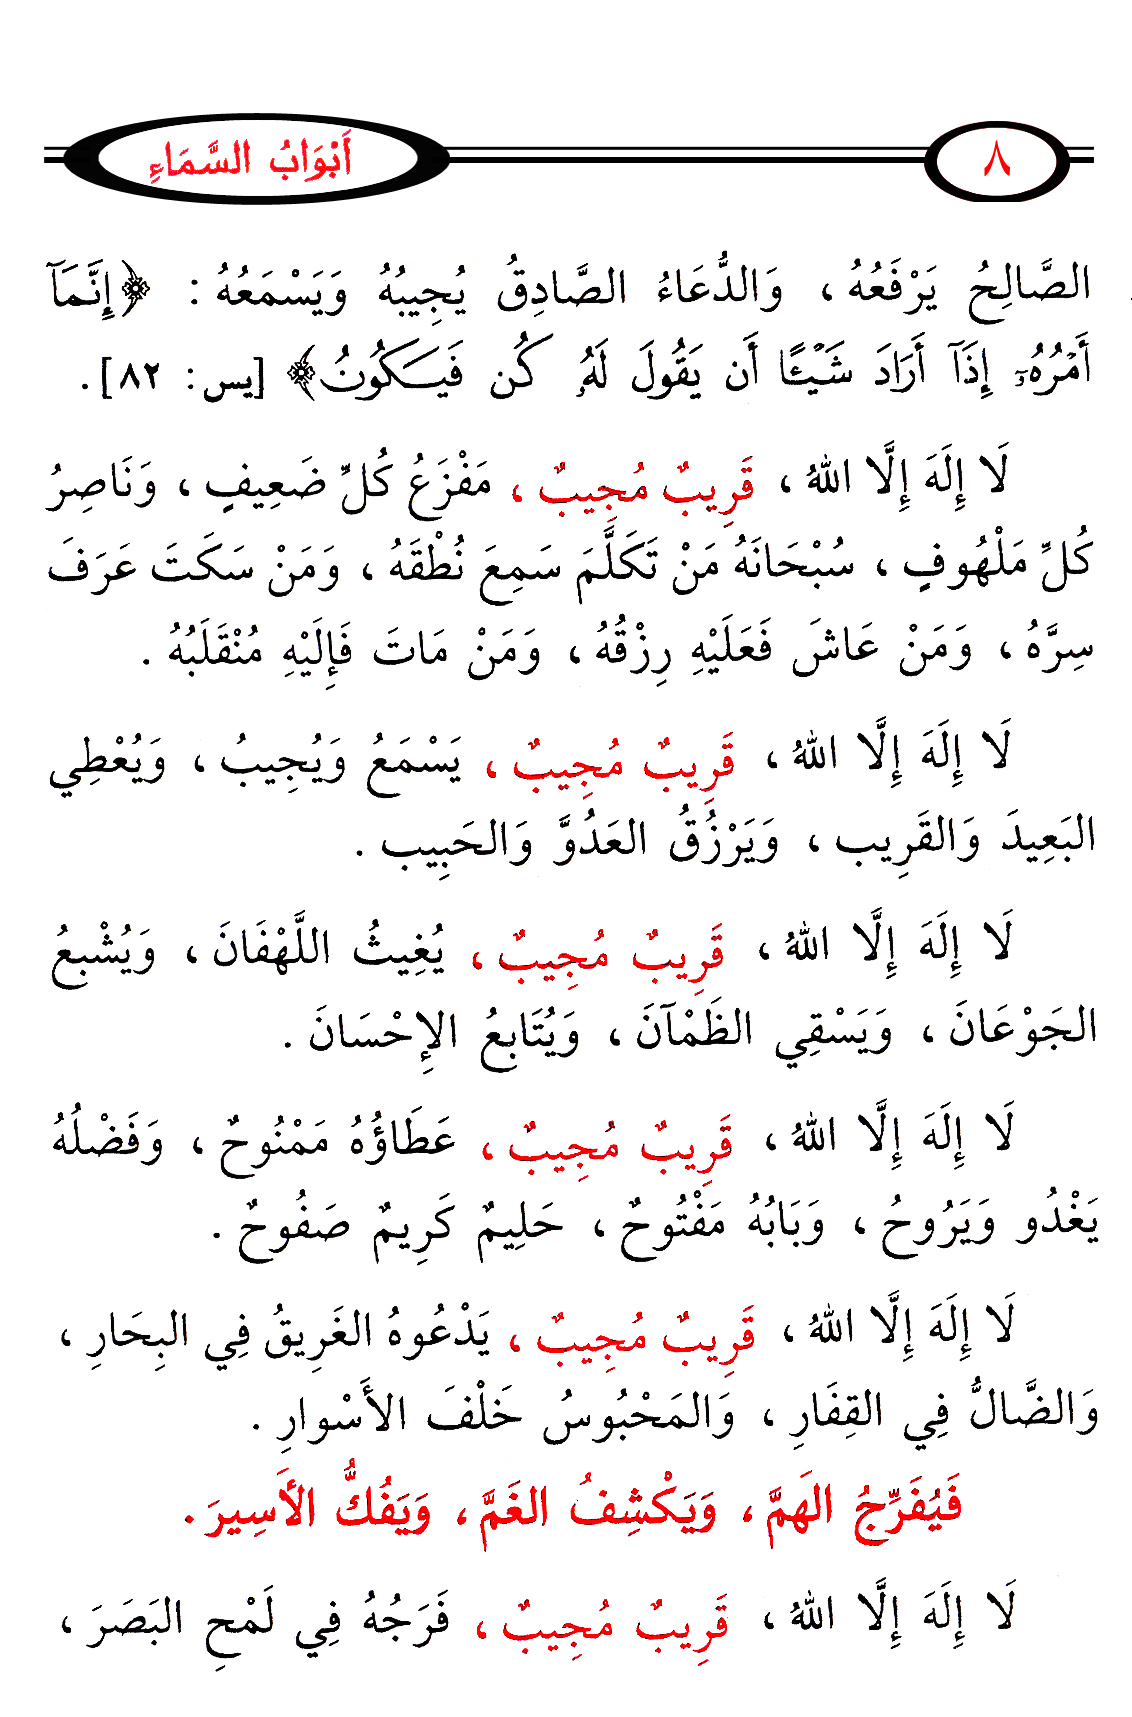 ٨
أَبْوَابُ السَّمَاءِ
الصَّالِحُ يَرْفَعُهُ ، وَالدُّعَاءُ الصَّادِقُ يُجِيبُهُ وَيَسْمَعُهُ : ﴿إِنَّمَآ
أَمْرُهُۥٓ إِذَآ أَرَادَ شَيْـًٔا أَن يَقُولَ لَهُۥ كُن فَيَكُونُ﴾ [يس : ٨٢] .
لَا إِلَهَ إِلَّا اللهُ ، قَرِيبٌ مُجِيبٌ ، مَفْزَعُ كُلِّ ضَعِيفٍ ، وَنَاصِرُ
كُلِّ مَلْهُوفٍ ، سُبْحَانَهُ مَنْ تَكَلَّمَ سَمِعَ نُطْقَهُ ، وَمَنْ سَكَتَ عَرَفَ
سِرَّهُ ، وَمَنْ عَاشَ فَعَلَيْهِ رِزْقُهُ ، وَمَنْ مَاتَ فَإِلَيْهِ مُنْقَلَبُهُ .
لَا إِلَهَ إِلَّا اللهُ ، قَرِيبٌ مُجِيبٌ ، يَسْمَعُ وَيُجِيبُ ، وَيُعْطِي
البَعِيدَ وَالقَرِيب ، وَيَرْزُقُ العَدُوَّ وَالحَبِيب .
لَا إِلَهَ إِلَّا اللهُ ، قَرِيبٌ مُجِيبٌ ، يُغِيثُ اللَّهْفَانَ ، وَيُشْبعُ
الجَوْعَانَ ، وَيَسْقِي الظَمْآنَ ، وَيُتَابعُ الإِحْسَانَ .
لَا إِلَهَ إِلَّا اللهُ ، قَرِيبٌ مُجِيبٌ ، عَطَاؤُهُ مَمْنُوحٌ ، وَفَضْلُهُ
يَغْدُو وَيَرُوحُ ، وَبَابُهُ مَفْتُوحٌ ، حَلِيمٌ كَرِيمٌ صَفُوحٌ .
لَا إِلَهَ إِلَّا اللهُ ، قَرِيبٌ مُجِيبٌ ، يَدْعُوهُ الغَرِيقُ فِي البِحَارِ ،
وَالضَّالُّ فِي القِفَارِ ، وَالمَحْبُوسُ خَلْفَ الأَسْوارِ .
فَيُفَرِّجُ الهَمَّ ، وَيَكْشِفُ الغَمَّ ، وَيَفُكُّ الأَسِيرَ .
لَا إِلَهَ إِلَّا اللهُ ، قَرِيبٌ مُجِيبٌ ، فَرَجُهُ فِي لَمْحِ البَصَرَ ،